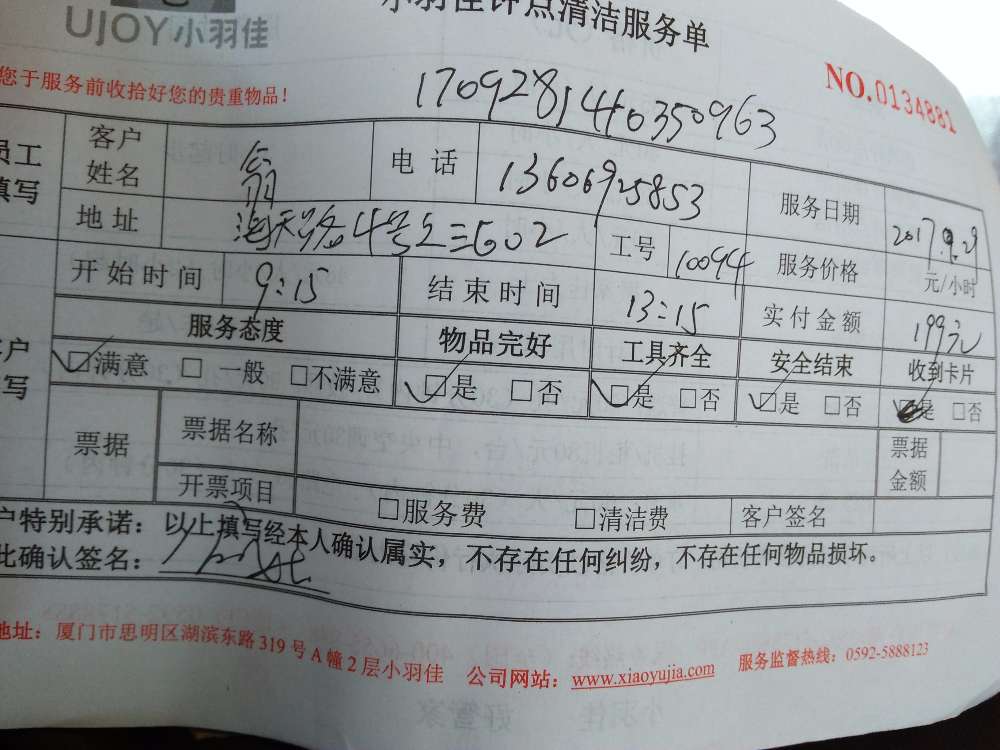 UJOY小羽佳
小羽佳钟点清洁服务单
您于服务前收拾好您的贵重物品!
NO.0134881
170928140350963
员工
填写
客户姓名 翁 电话 13606925853 服务日期 2017.9.29
地址 工号 10094 服务价格 元/小时
开始时间 9:15 结束时间 13:15 实付金额 199元
服务态度 物品完好 工具齐全 安全结束 收到卡片
☑满意 □一般 □不满意 ☑是 □否 ☑是 □否 ☑是 □否 ☑是 □否
票据 票据名称 票据金额
开票项目 □服务费 □清洁费 客户签名
户特别承诺:以上填写经本人确认属实,不存在任何纠纷,不存在任何物品损坏。
此确认签名:
地址:厦门市思明区湖滨东路319号A幢2层小羽佳 公司网站:www.xiaoyujia.com 服务监督热线:0592-5888123